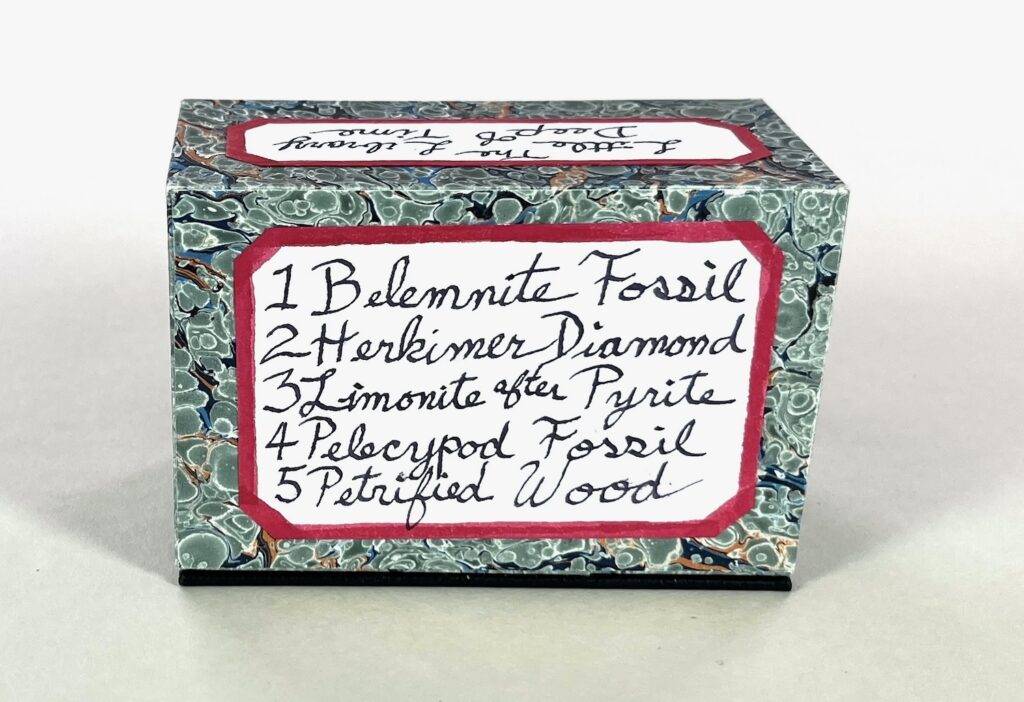 The
Little Library
Deep of Time
1 Belemnite Fossil
2 Herkimer Diamond
3 Limonite after Pyrite
4 Pelecypod Fossil
5 Petrified Wood